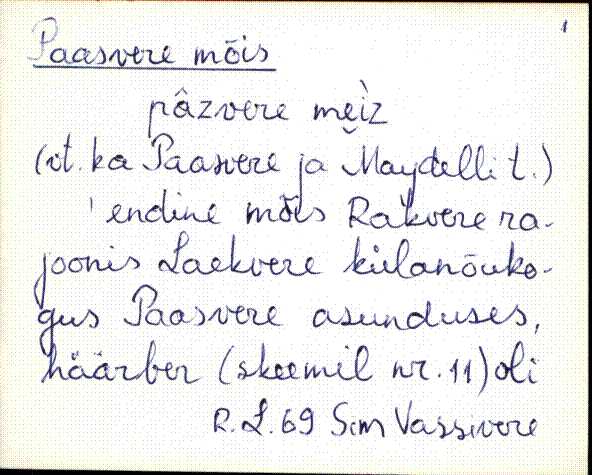 1
Paasvere mõis
pâzvere mei̬z
(vt. ka Paasvere ja Maydelli t.)
endine mõis Rakvere ra-
joonis Laekvere külanõuko-
gus Paasvere asunduses,
häärber (skeemil nr. 11) oli
R.L. 69 Sim Vassivere